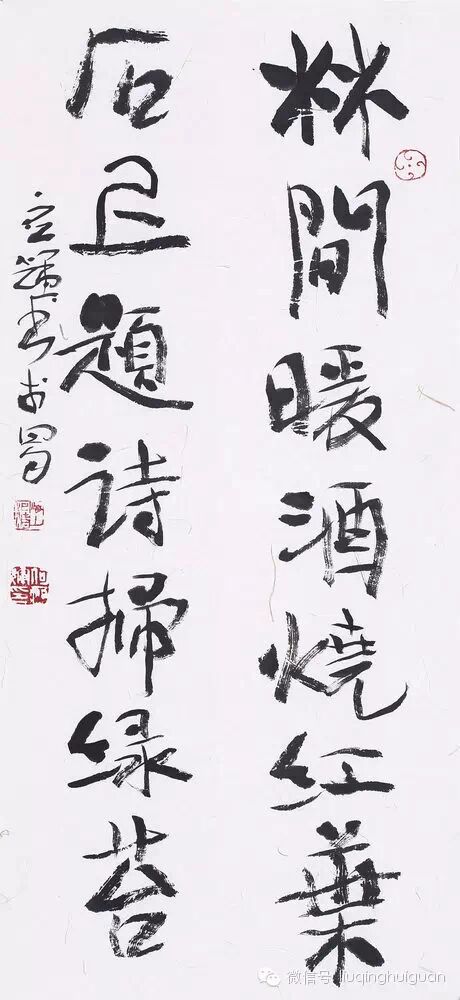 林間暖酒燒红葉
石上題诗掃绿苔
書於蜀
微信号: liuqinghuiguan